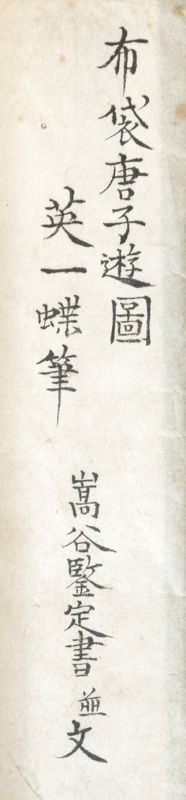 布袋唐子遊圖
英一蝶筆
嵩谷鑒定書並文